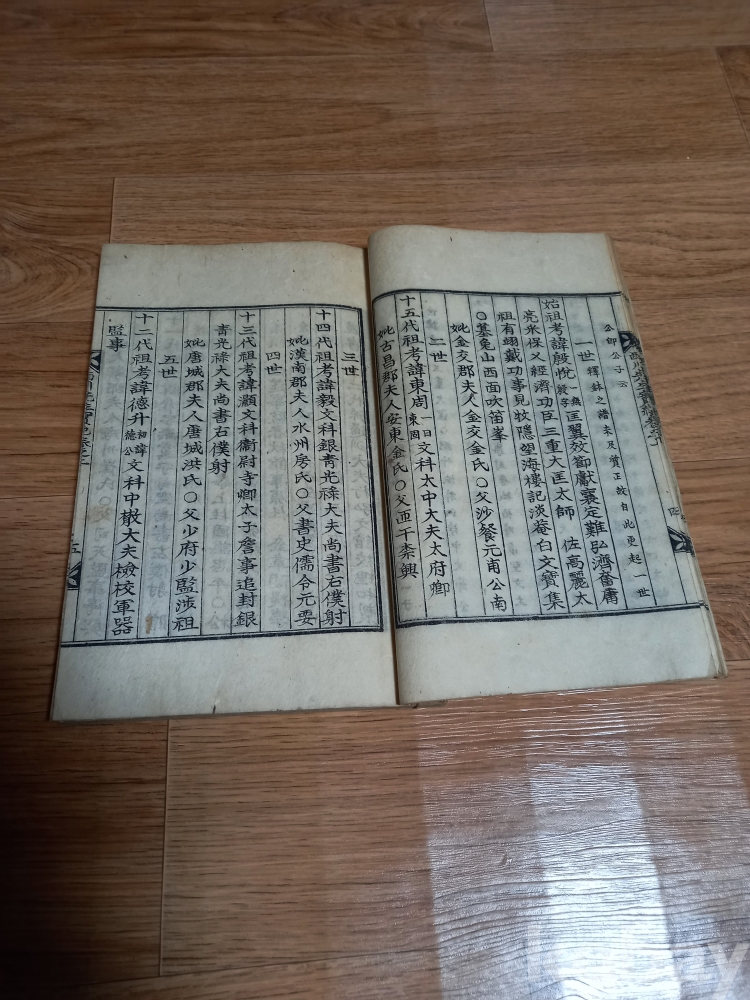 公卽公子云
一世 釋缺之諸未及質正故自此更起一世
始祖考諱殷悅 一無贊字 匡翼效節獻襄定難弘濟奮庸
亮采保乂經濟功臣三重大匡太師 佐高麗太
祖有翊戴功事見牧隱望海樓記淡庵白文寶集
○墓龜山西面吹笛峯
妣金交郡夫人金交金氏○父沙餐元甫公南
二世
十五代祖考諱東周 一曰東岡 文科太中大夫太府卿
妣古昌郡夫人安東金氏○父
三世
十四代祖考諱毅文科銀青光祿大夫尚書右僕射
妣漢南郡夫人水州房氏○父書史儒令元要
四世
十三代祖考諱灝文科衞尉寺卿太子詹事追封銀
青光祿大夫尚書右僕射
妣唐城郡夫人唐城洪氏○父少府少監涉祖
五世
十二代祖考諱德升 初諱德公 文科中散大夫檢校軍器
監事
五